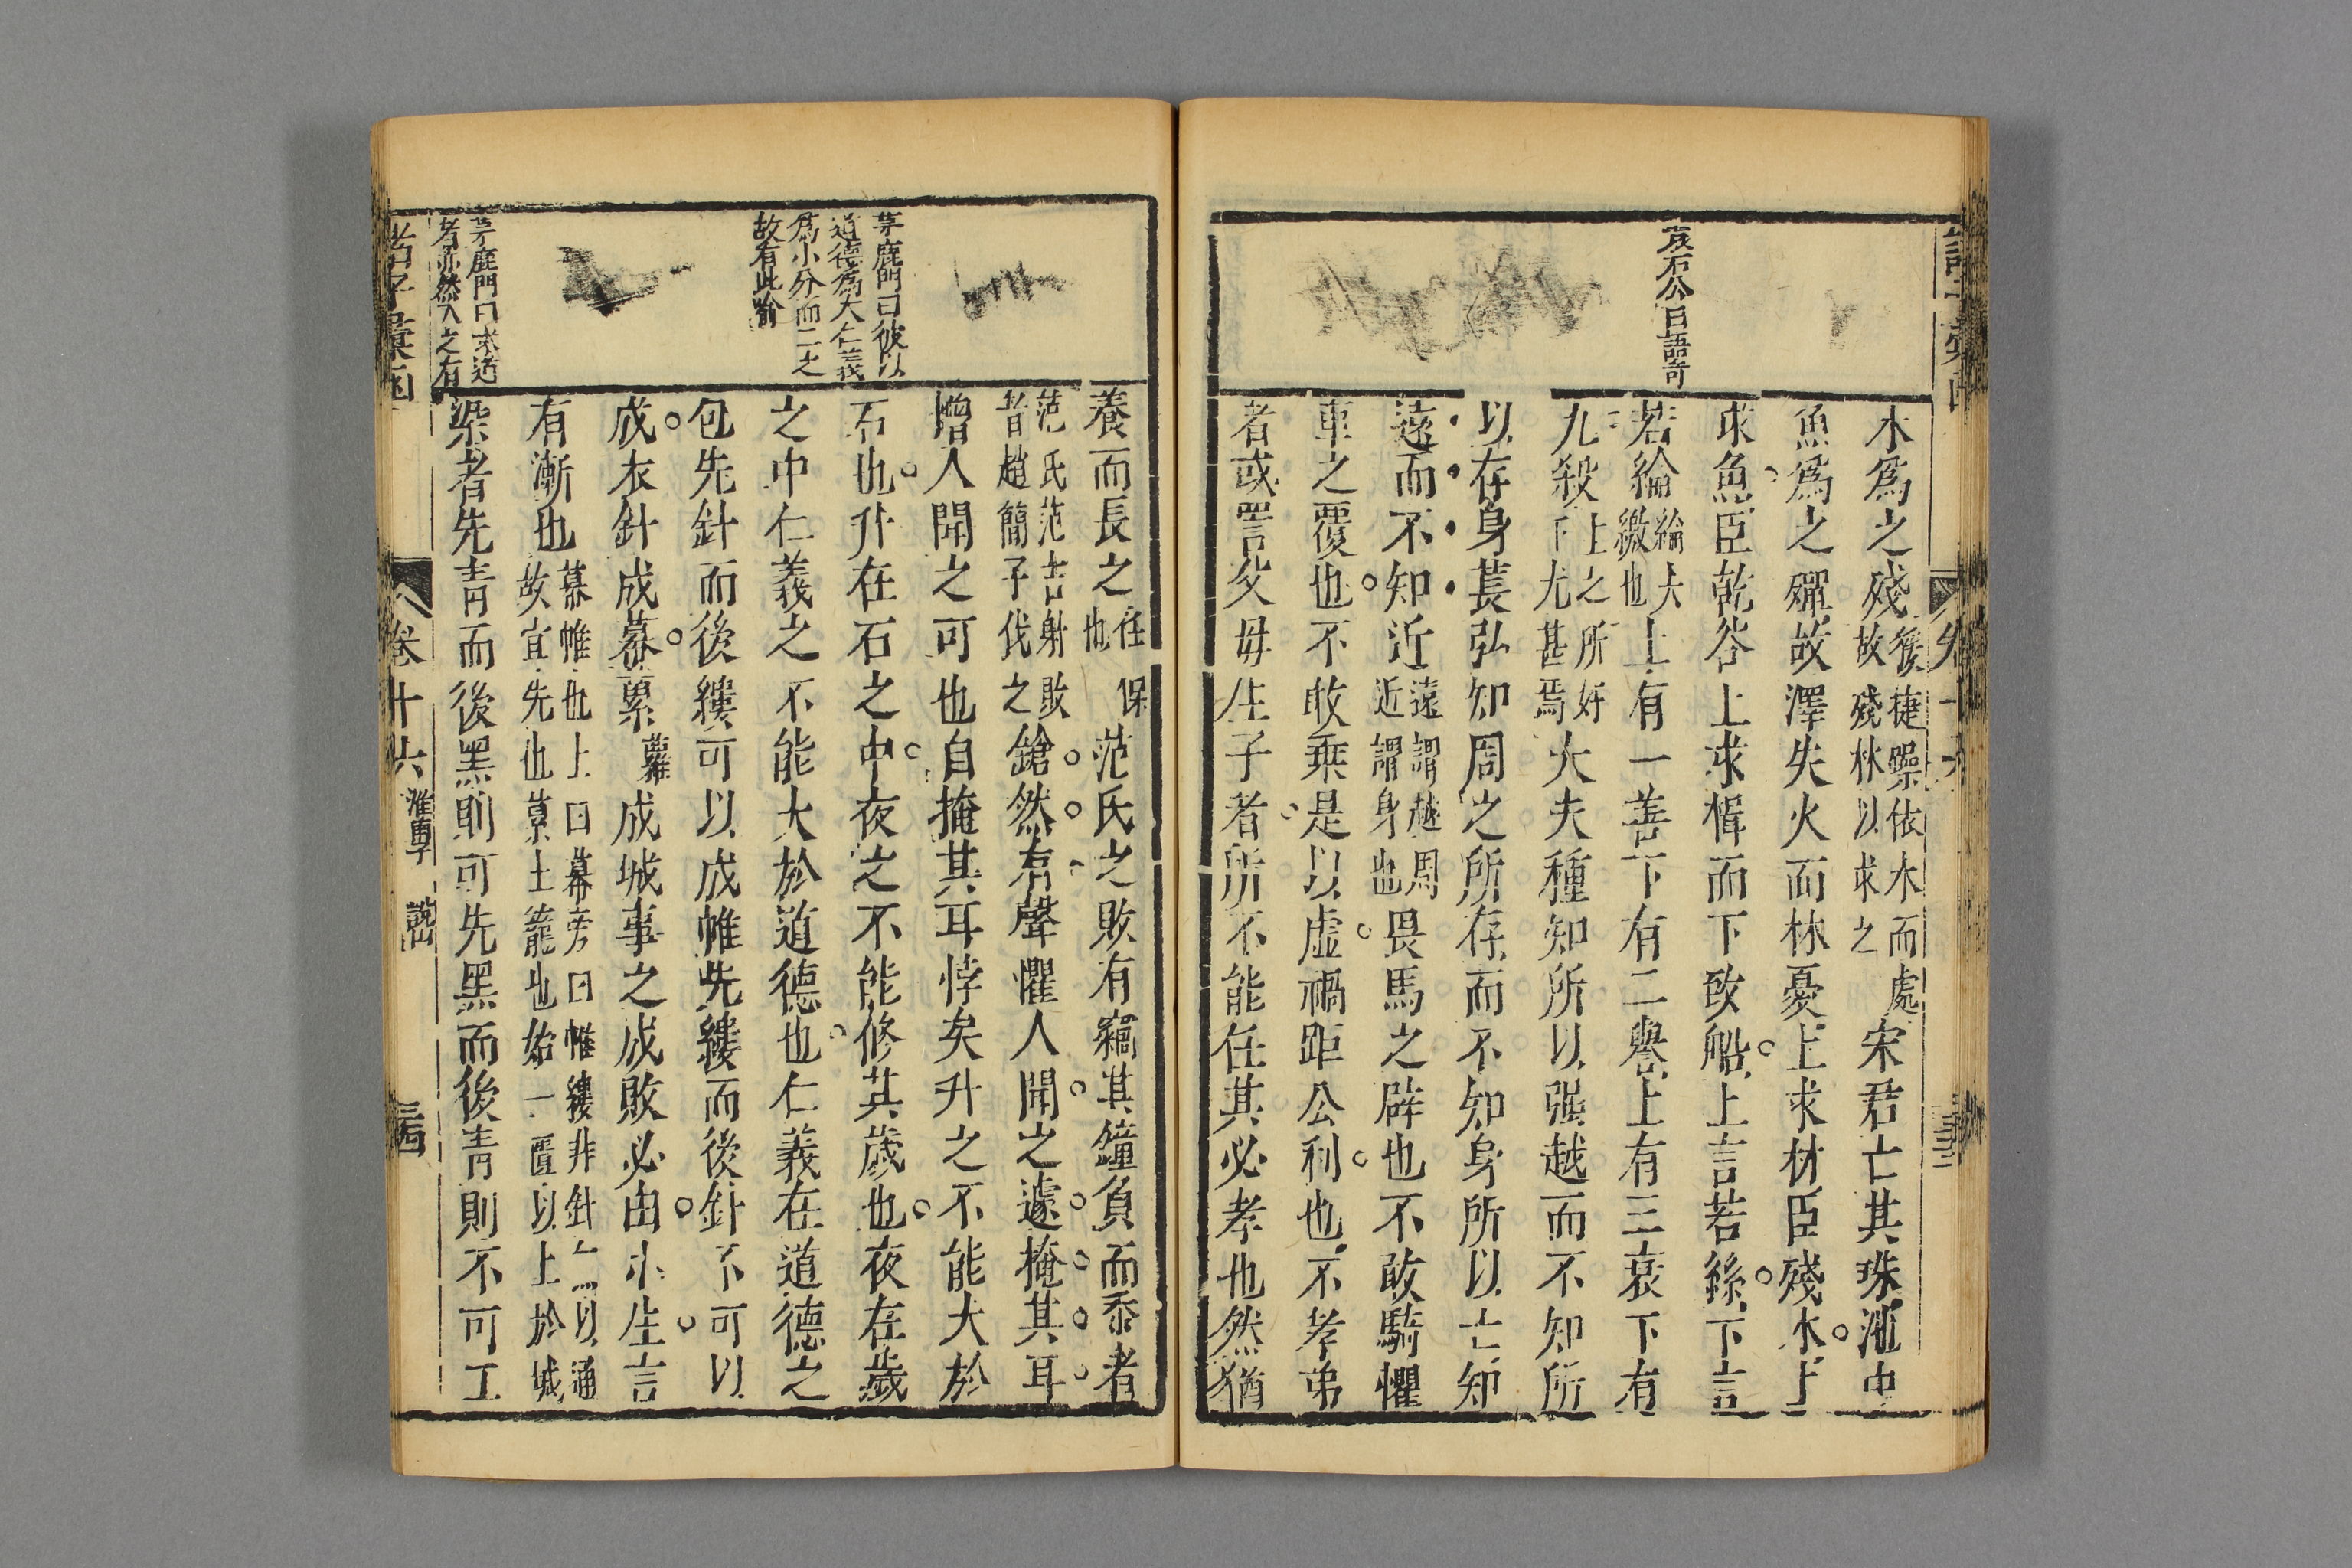 袁石公曰語奇
木為之殘猨捷躁依木而處故殘林以求之宋君亡其珠池中
魚為之殫故澤失火而林憂上求材臣殘木上
求魚臣乾谷上求楫而下致船上言若絲下言
若綸綸大繳也上有一善下有二譽上有三衰下有
九殺上之所好下尤甚焉大夫種知所以强越而不知所
以存身萇弘知周之所存而不知身所以亡知
遠而不知近遠謂越周近謂身也畏馬之辟也不敢騎懼
車之覆也不敢乘是以虛禍距公利也不孝弟
者或詈父毋生子者所不能任其必孝也然猶
茅鹿門曰彼以
道德為大仁義
為小分而二之
故有此喻
茅鹿門曰求道
者亦然人之有
養而長之任保也范氏之敗有竊其鐘負而忝者
范氏范吉射敗昔趙簡子伐之鎗然有聲懼人聞之遽掩其耳
憎人聞之可也自掩其耳悖矣升之不能大於
石也升在石之中夜之不能修其歲也夜在歲
之中仁義之不能大於道德也仁義在道德之
包先針而後縷可以成帷先縷而後針不可以
成衣針成幕蔂成城事之成敗必由小生言
有漸也幕帷也上曰幕旁曰帷縷非針以通故宜先也蔂土籠也始一匱以上於城
染者先青而後黑則可先黑而後青則不可工
諸子彙函
卷十六
說山
三四